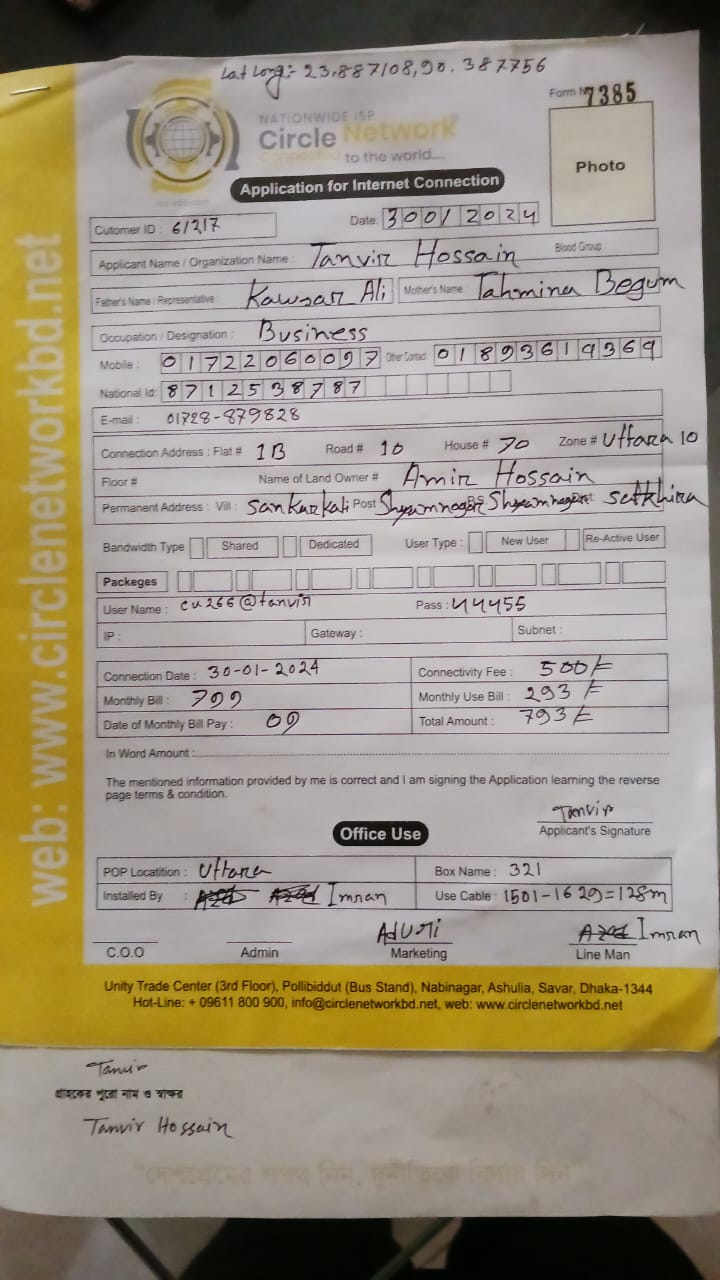 Lat Long:- 23.887108,90.387756
Form № 7385
NATIONWIDE ISP
Circle Network
Connected to the world....
Photo
Application for Internet Connection
Cutomer ID : 61217
Date: 30012024
Applicant Name / Organization Name : Tanvir Hossain Blood Group :
Father's Name / Representative : Kawsar Ali Mother's Name : Tahmina Begum
Occupation / Designation : Business
Mobile : 01722060097 Other Contact 01893619369
National Id: 8712538787
E-mail : 01728-879828
Connection Address : Flat # 1B Road # 10 House # 70 Zone # Uttara 10
Floor # Name of Land Owner # Amir Hossain
Permanent Address : Vill : Sankarkati Post Shyamnagar P.S Shyamnagar Dist: Satkhira
Bandwidth Type Shared Dedicated User Type : New User Re-Active User
Packeges
User Name : cu266@tanvir Pass : 44455
IP : Gateway : Subnet :
Connection Date : 30-01-2024 Connectivity Fee : 500/=
Monthly Bill : 799 Monthly Use Bill : 293/=
Date of Monthly Bill Pay : 09 Total Amount : 793/=
In Word Amount :
The mentioned information provided by me is correct and I am signing the Application learning the reverse
page terms & condition.
Tanvir
Applicant's Signature
Office Use
POP Locatition : Uttara Box Name : 321
Installed By : Imran Use Cable : 1501-1629=128m
Imran
C.O.O Admin Marketing Line Man
Unity Trade Center (3rd Floor), Pollibiddut (Bus Stand), Nabinagar, Ashulia, Savar, Dhaka-1344
Hot-Line: + 09611 800 900, info@circlenetworkbd.net, web: www.circlenetworkbd.net
web: www.circlenetworkbd.net
Tanvir
গ্রাহকের পুরো নাম ও স্বাক্ষর
Tanvir Hossain
"দেশপ্রেমের শপথ নিন, দুর্নীতিকে বিদায় দিন"